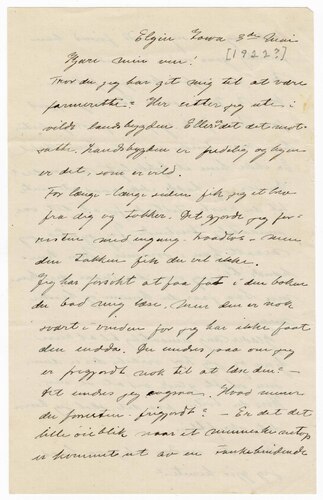 Elgin Iowa 3die Mai
[1922?]
Kjære min ven!
Tror du jeg har git mig til at være
farmerenke? Her sitter jeg ute i
vilde landsbygden. Eller det det mot-
satte. Landsbygden er fredelig og byen
er det, som er vild.
For længe - længe siden fik jeg et brev
fra dig og Lokken. Det gjorde jeg for-
resten med engang. Traadløs - men
den Lokken fik du vel ikke.
Jeg har forsøkt at faa fat i den boken
du bad mig læse. Men den er nok
svært i vinden for jeg har ikke faat
den endda. Du undres paa om jeg
er frigjordt nok til at læse den? -
Det undres jeg ogsaa. Hvad mener
du forresten: frigjordt? - Er det det
lille øieblik naar et menneske netop
er kommet ut av en tankebindende